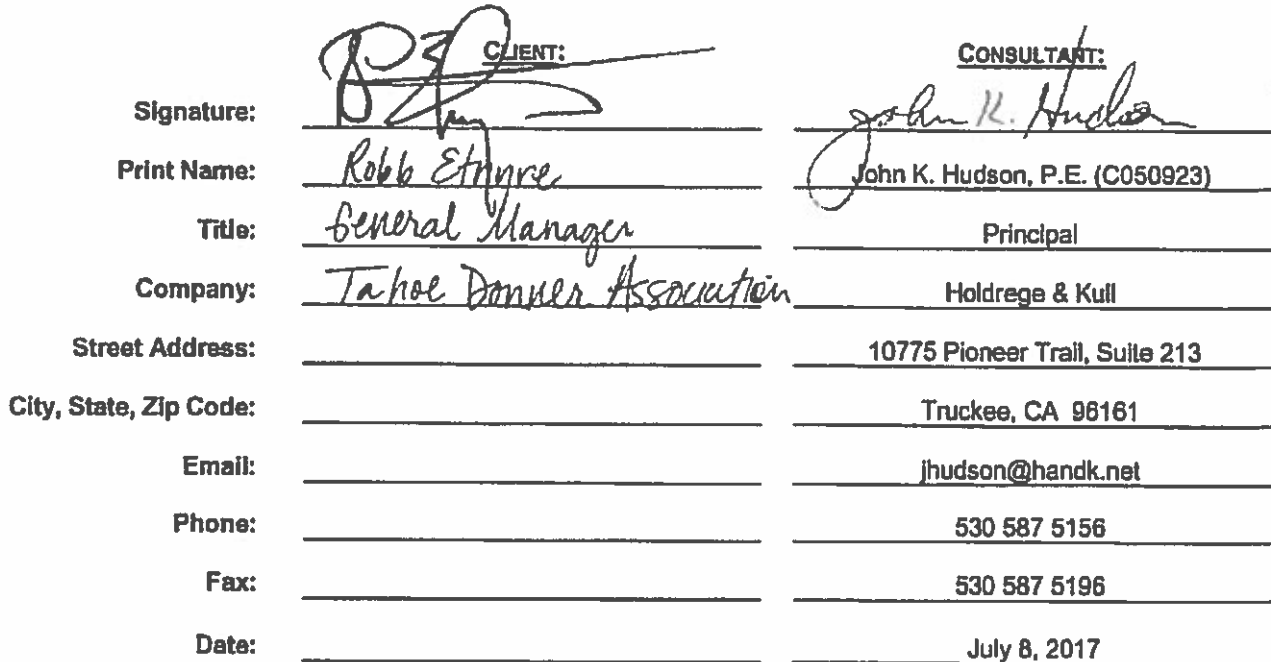 CLIENT: CONSULTANT:
Signature: John K. Hudson
Print Name: Robb Etnyre John K. Hudson, P.E. (C050923)
Title: General Manager Principal
Company: Tahoe Donner Association Holdrege & Kull
Street Address: 10775 Pioneer Trail, Suite 213
City, State, Zip Code: Truckee, CA 96161
Email: jhudson@handk.net
Phone: 530 587 5156
Fax: 530 587 5196
Date: July 8, 2017